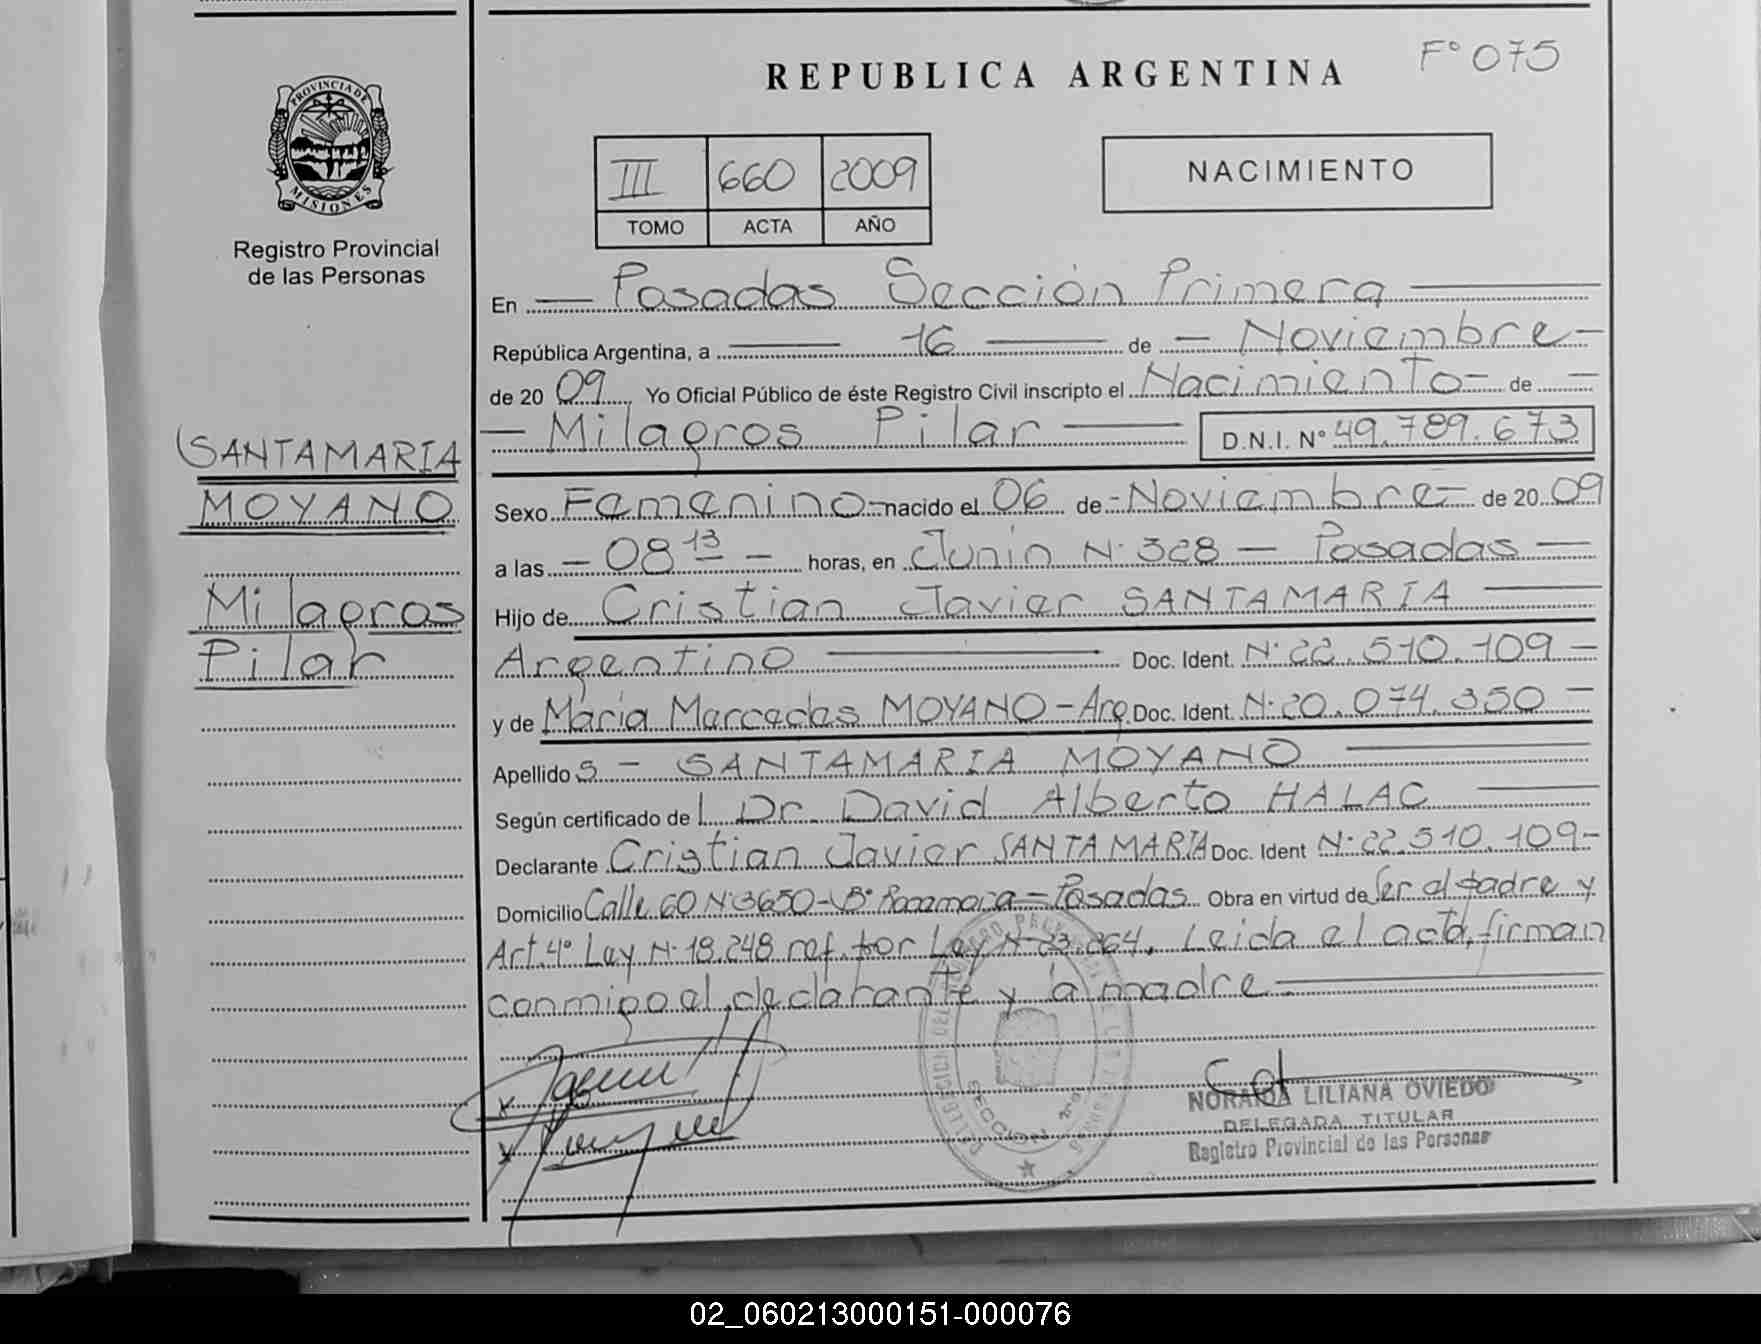 F° 075
REPUBLICA ARGENTINA
PROVINCIA DE MISIONES
Registro Provincial
de las Personas
III 660 2009
TOMO ACTA AÑO
NACIMIENTO
En — Posadas Sección Primera —
República Argentina, a — 16 — de — Noviembre —
de 2009 Yo Oficial Público de éste Registro Civil inscripto el Nacimiento - de —
— Milagros Pilar — D.N.I. N° 49.789.673
SANTAMARIA
MOYANO
Milagros
Pilar
Sexo Femenino - nacido el 06 de - Noviembre - de 2009
a las — 08 13 — horas, en Junín N° 328 — Posadas —
Hijo de Cristian Javier SANTAMARIA —
Argentino — Doc. Ident. N° 22.510.109 —
y de María Mercedes MOYANO - Arg. Doc. Ident. N° 20.074.350 —
Apellidos - SANTAMARIA MOYANO —
Según certificado del Dr. David Alberto HALAC —
Declarante Cristian Javier SANTAMARIA Doc. Ident N° 22.510.109 -
Domicilio Calle 60 N° 3650 - B° - Posadas Obra en virtud de Ser el padre y
Art. 4° Ley N° 18.248 ref. por Ley N° 23.264. Leida el acta, firman
conmigo el declarante y la madre —
SECCION
NORAIDA LILIANA OVIEDO
DELEGADA TITULAR
Registro Provincial de las Personas
02_060213000151-000076